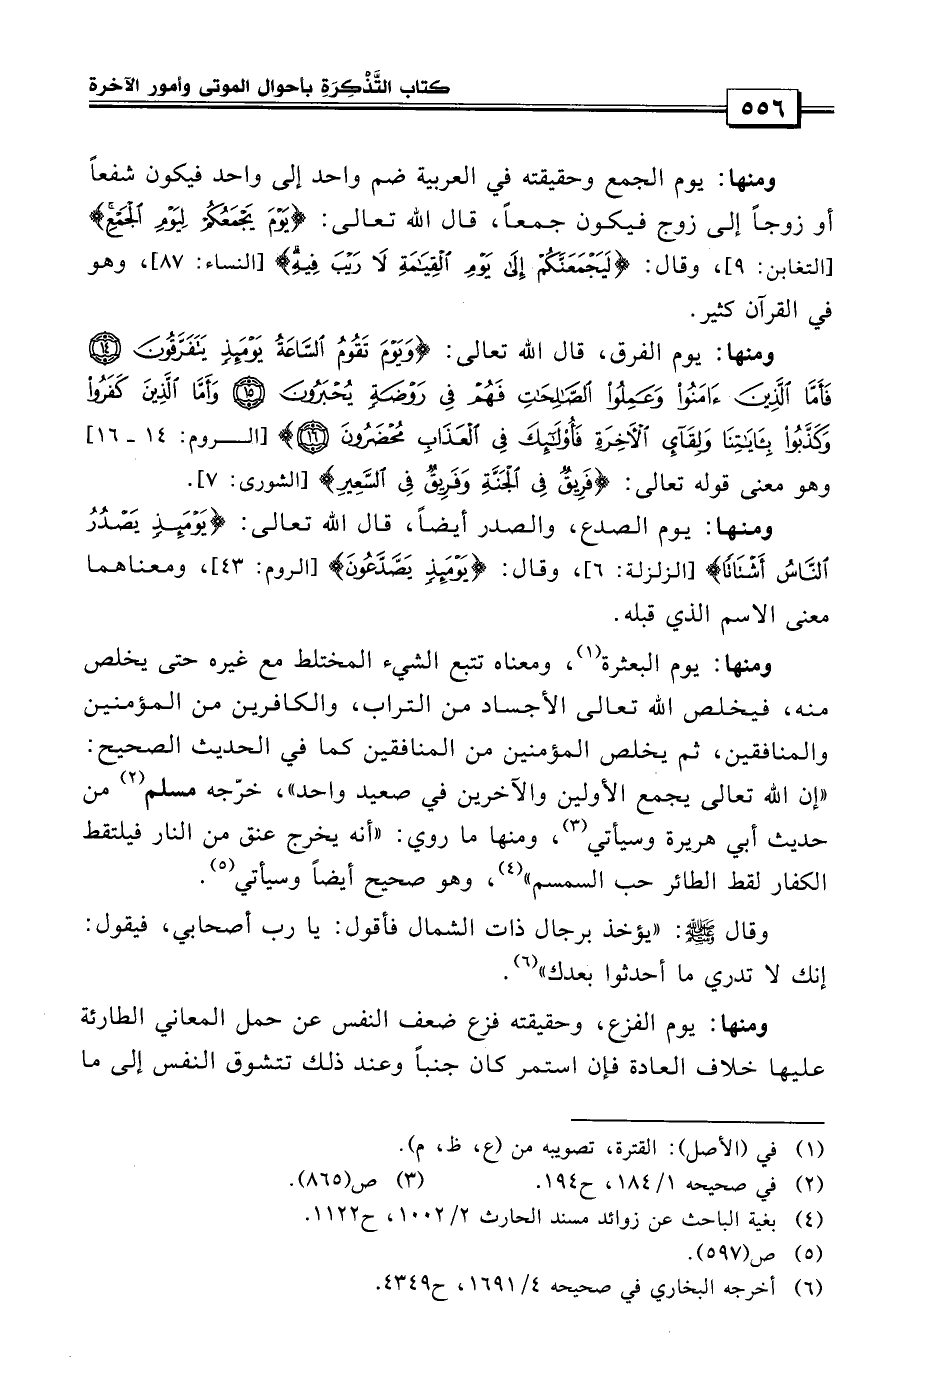 كتاب التَّذْكِرَة بأحوال الموتى وأمور الآخرة
٥٥٦
ومنها: يوم الجمع وحقيقته في العربية ضم واحد إلى واحد فيكون شفعاً
أو زوجاً إلى زوج فيكون جمعاً، قال الله تعالى: ﴿يَوْمَ يَجْمَعُكُمْ لِيَوْمِ ٱلْجَمْعِ﴾
[التغابن: ٩]، وقال: ﴿لَيَجْمَعَنَّكُمْ إِلَىٰ يَوْمِ ٱلْقِيَٰمَةِ لَا رَيْبَ فِيهِ﴾ [النساء: ٨٧]، وهو
في القرآن كثير.
ومنها: يوم الفرق، قال الله تعالى: ﴿وَيَوْمَ تَقُومُ ٱلسَّاعَةُ يَوْمَئِذٍ يَتَفَرَّقُونَ ١٤
فَأَمَّا ٱلَّذِينَ ءَامَنُوا۟ وَعَمِلُوا۟ ٱلصَّٰلِحَٰتِ فَهُمْ فِى رَوْضَةٍ يُحْبَرُونَ ١٥ وَأَمَّا ٱلَّذِينَ كَفَرُوا۟
وَكَذَّبُوا۟ بِـَٔايَٰتِنَا وَلِقَآئِ ٱلْـَٔاخِرَةِ فَأُو۟لَٰٓئِكَ فِى ٱلْعَذَابِ مُحْضَرُونَ ١٦﴾ [الروم: ١٤ ـ ١٦]
وهو معنى قوله تعالى: ﴿فَرِيقٌ فِى ٱلْجَنَّةِ وَفَرِيقٌ فِى ٱلسَّعِيرِ﴾ [الشورى: ٧].
ومنها: يوم الصدع، والصدر أيضاً، قال الله تعالى: ﴿يَوْمَئِذٍ يَصْدُرُ
ٱلنَّاسُ أَشْتَاتًا﴾ [الزلزلة: ٦]، وقال: ﴿يَوْمَئِذٍ يَصَّدَّعُونَ﴾ [الروم: ٤٣]، ومعناهما
معنى الاسم الذي قبله.
ومنها: يوم البعثرة(١)، ومعناه تتبع الشيء المختلط مع غيره حتى يخلص
منه، فيخلص الله تعالى الأجساد من التراب، والكافرين من المؤمنين
والمنافقين، ثم يخلص المؤمنين من المنافقين كما في الحديث الصحيح:
«إن الله تعالى يجمع الأولين والآخرين في صعيد واحد»، خرّجه مسلم(٢) من
حديث أبي هريرة وسيأتي(٣)، ومنها ما روي: «أنه يخرج عنق من النار فيلتقط
الكفار لقط الطائر حب السمسم»(٤)، وهو صحيح أيضاً وسيأتي(٥).
وقال ﷺ: «يؤخذ برجال ذات الشمال فأقول: يا رب أصحابي، فيقول:
إنك لا تدري ما أحدثوا بعدك»(٦).
ومنها: يوم الفزع، وحقيقته فزع ضعف النفس عن حمل المعاني الطارئة
عليها خلاف العادة فإن استمر كان جنباً وعند ذلك تتشوق النفس إلى ما
(١) في (الأصل): القترة، تصويبه من (ع، ظ، م).
(٢) في صحيحه ١/ ١٨٤، ح١٩٤. (٣) ص(٨٦٥).
(٤) بغية الباحث عن زوائد مسند الحارث ٢/ ١٠٠٢، ح١١٢٢.
(٥) ص(٥٩٧).
(٦) أخرجه البخاري في صحيحه ٤/ ١٦٩١، ح٤٣٤٩.